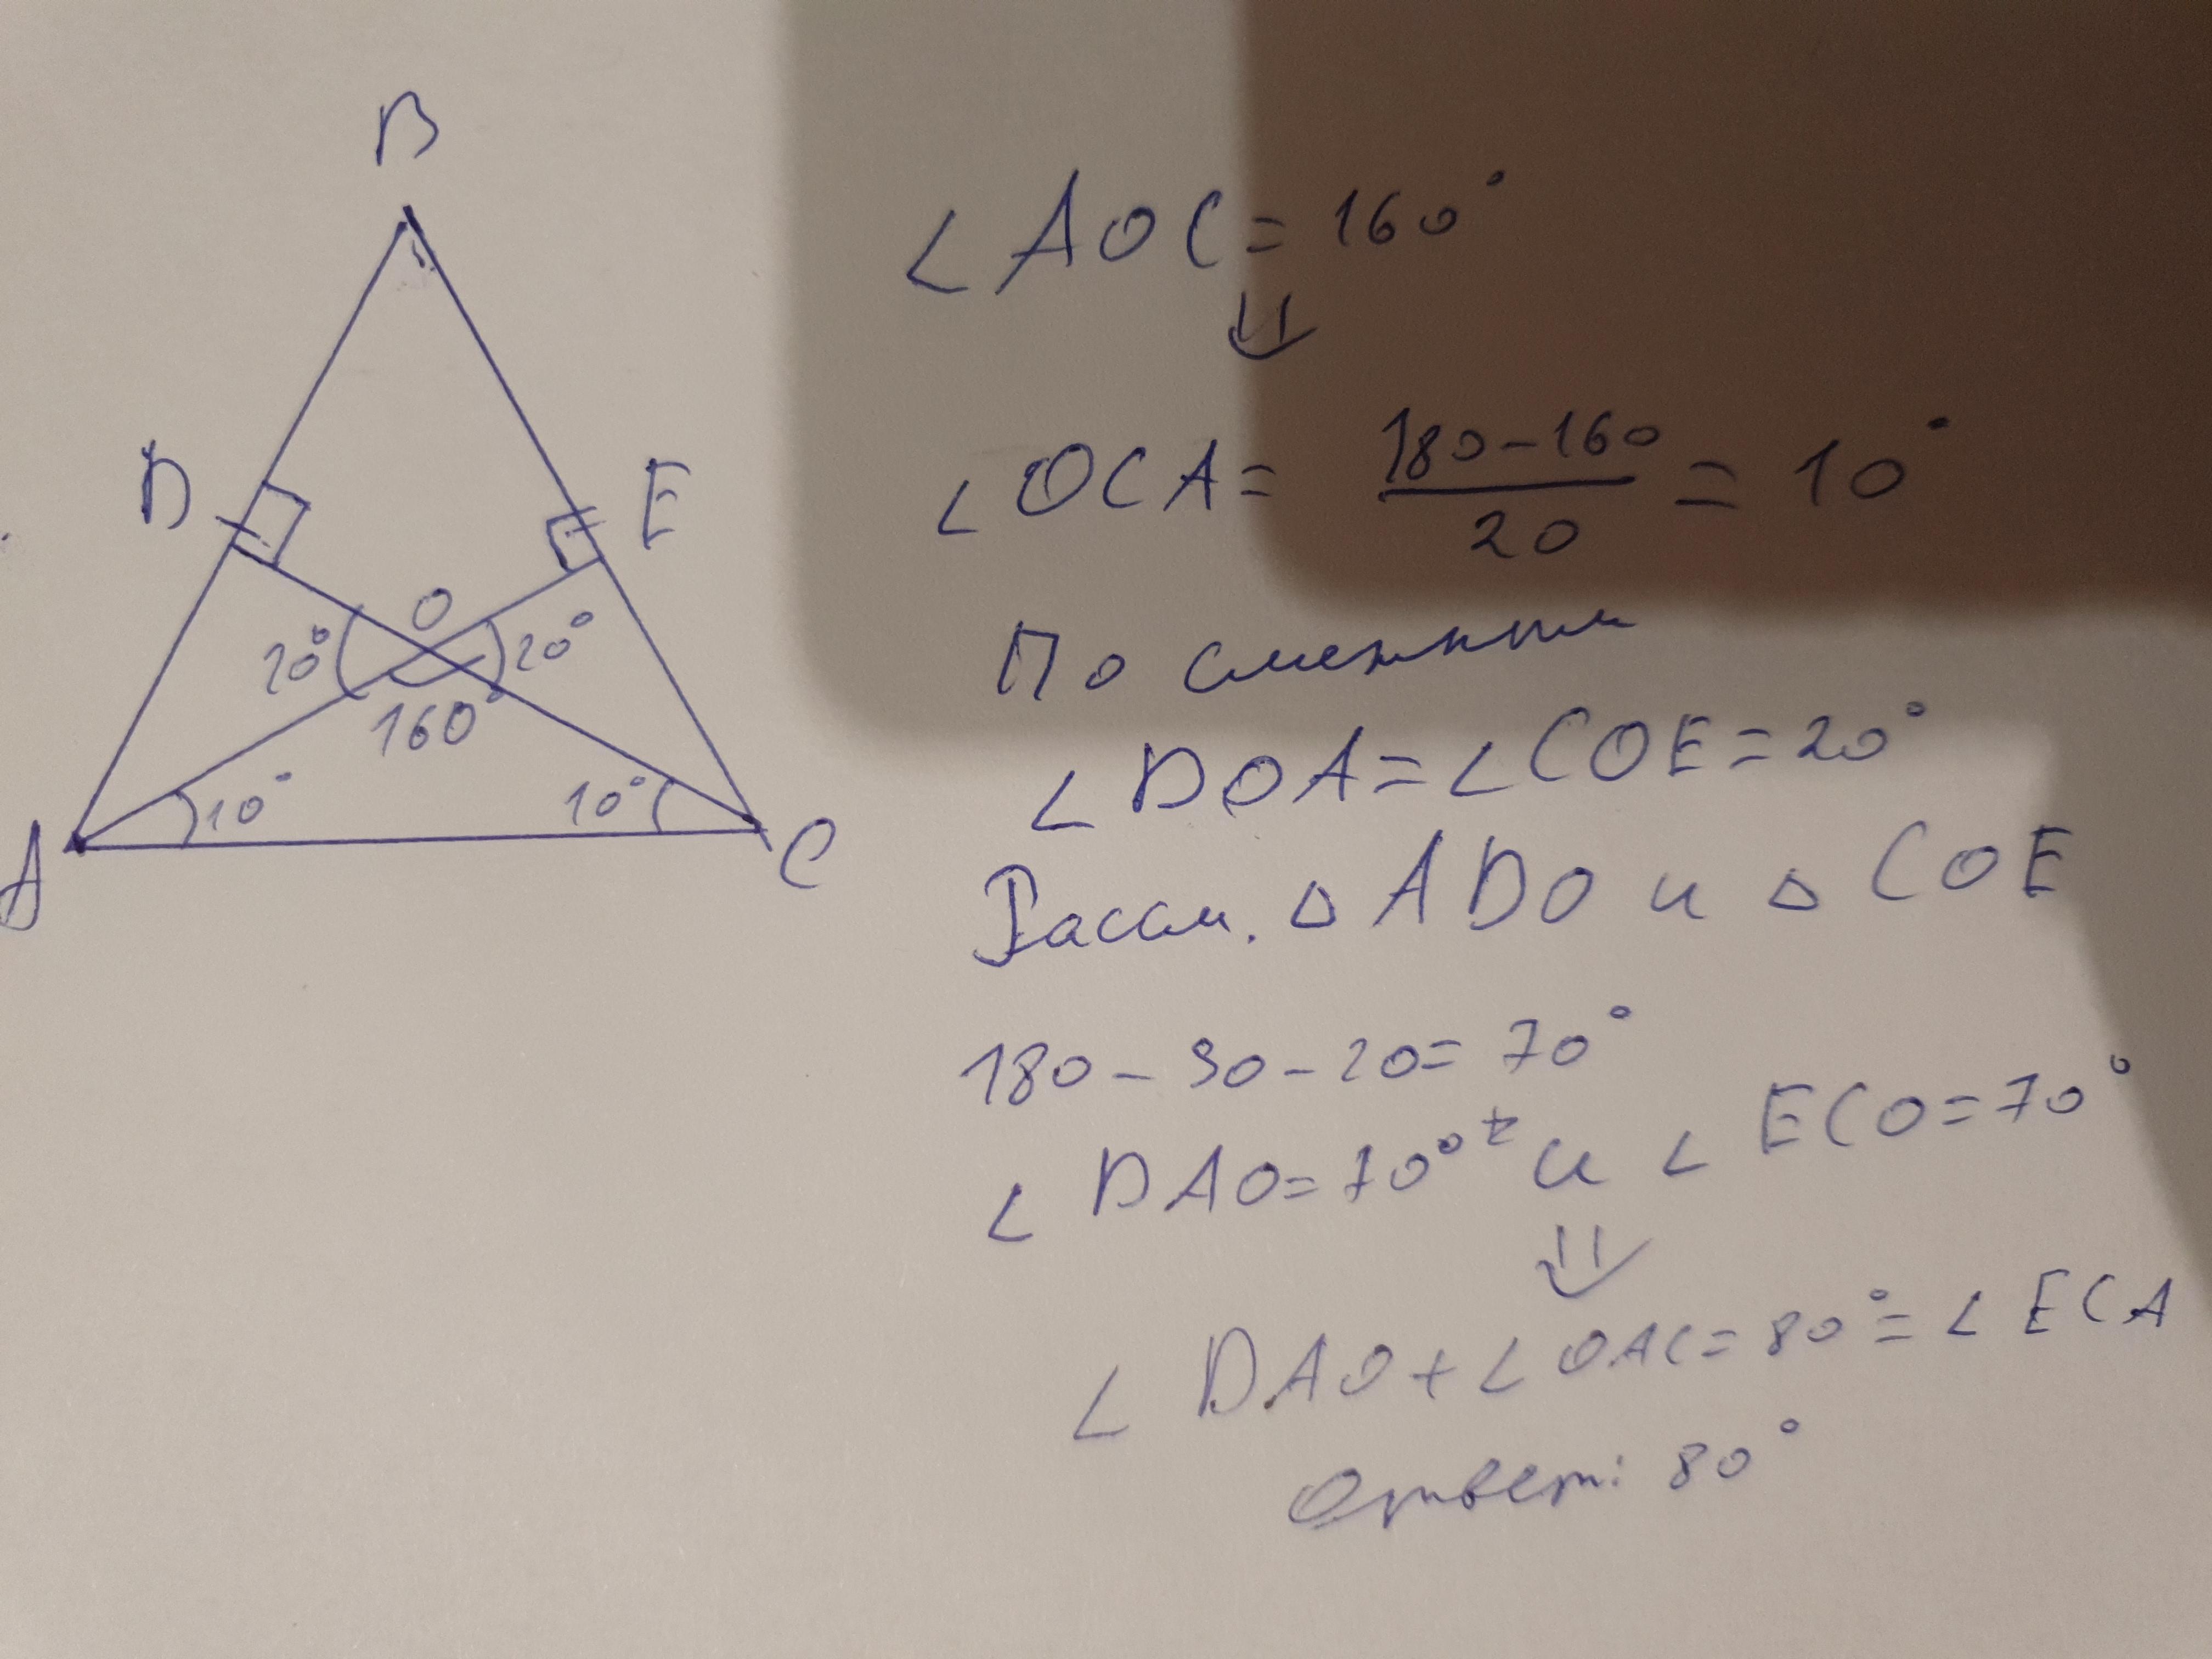 B
D
E
O
20°
20°
160°
10°
10°
A
C
∠AOC = 160°
⇓
∠OCA = (180-160)/20 = 10°
По смежным
∠DOA = ∠COE = 20°
Рассм. △ADO и △COE
180 - 90 - 20 = 70°
∠DAO = 70° и ∠ECO = 70°
⇓
∠DAO + ∠OAC = 80° = ∠ECA
Ответ: 80°